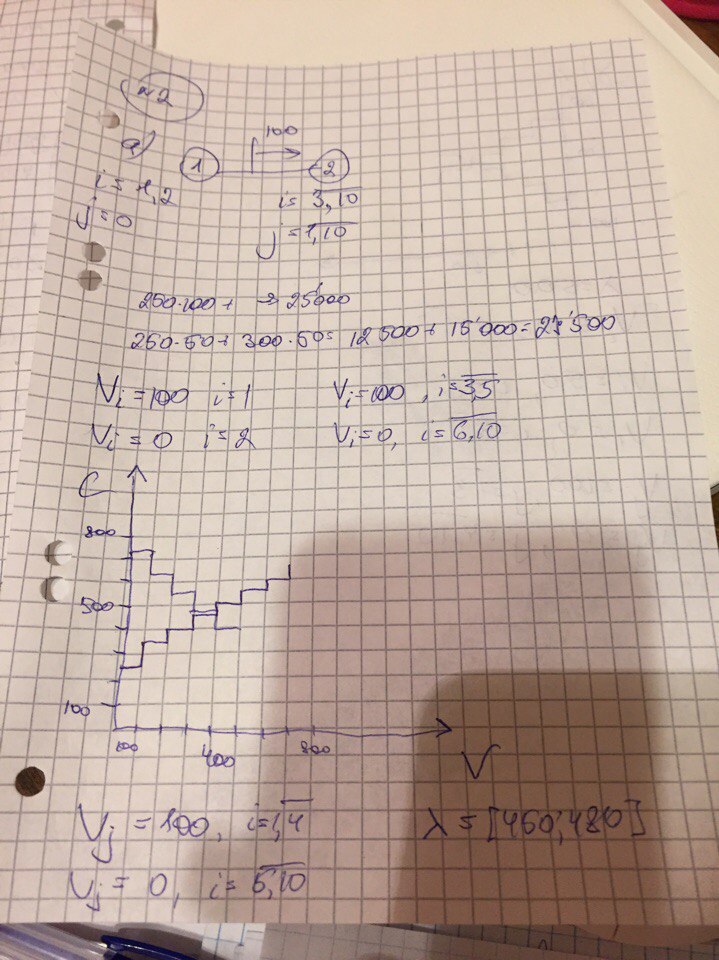 №2
а)
100
1 2
i = 1,2
j = 0
i = 3,10
j = 1,10
250·100 + → 25'000
250·50 + 300·50 = 12500 + 15'000 = 27'500
Vi = 100 i = 1
Vi = 0 i = 2
Vi = 100, i = 3,5
Vi = 0, i = 6,10
C
800
500
100
100 400 800
V
Vj = 100, i = 1,4
Vj = 0, i = 5,10
λ = [460;480]